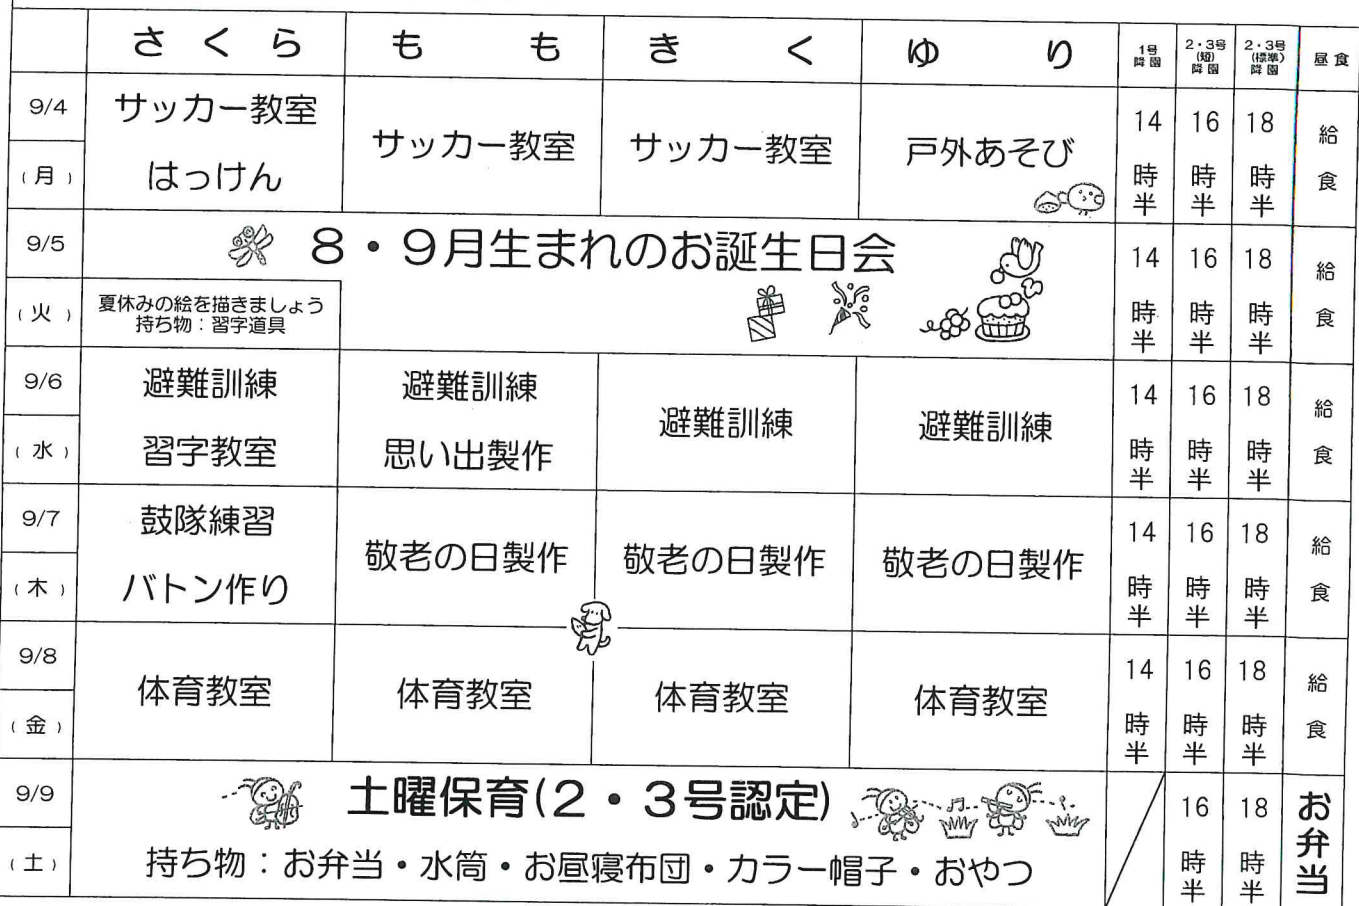 さくら もも きく ゆり 1号降園 2・3号(短)降園 2・3号(標準)降園 昼食
9/4
(月)
サッカー教室
はっけん
サッカー教室
サッカー教室
戸外あそび
14時半
16時半
18時半
給食
9/5
(火)
8・9月生まれのお誕生日会
夏休みの絵を描きましょう
持ち物:習字道具
14時半
16時半
18時半
給食
9/6
(水)
避難訓練
習字教室
避難訓練
思い出製作
避難訓練
避難訓練
14時半
16時半
18時半
給食
9/7
(木)
鼓隊練習
バトン作り
敬老の日製作
敬老の日製作
敬老の日製作
14時半
16時半
18時半
給食
9/8
(金)
体育教室
体育教室
体育教室
体育教室
14時半
16時半
18時半
給食
9/9
(土)
土曜保育(2・3号認定)
持ち物:お弁当・水筒・お昼寝布団・カラー帽子・おやつ
16時半
18時半
お弁当